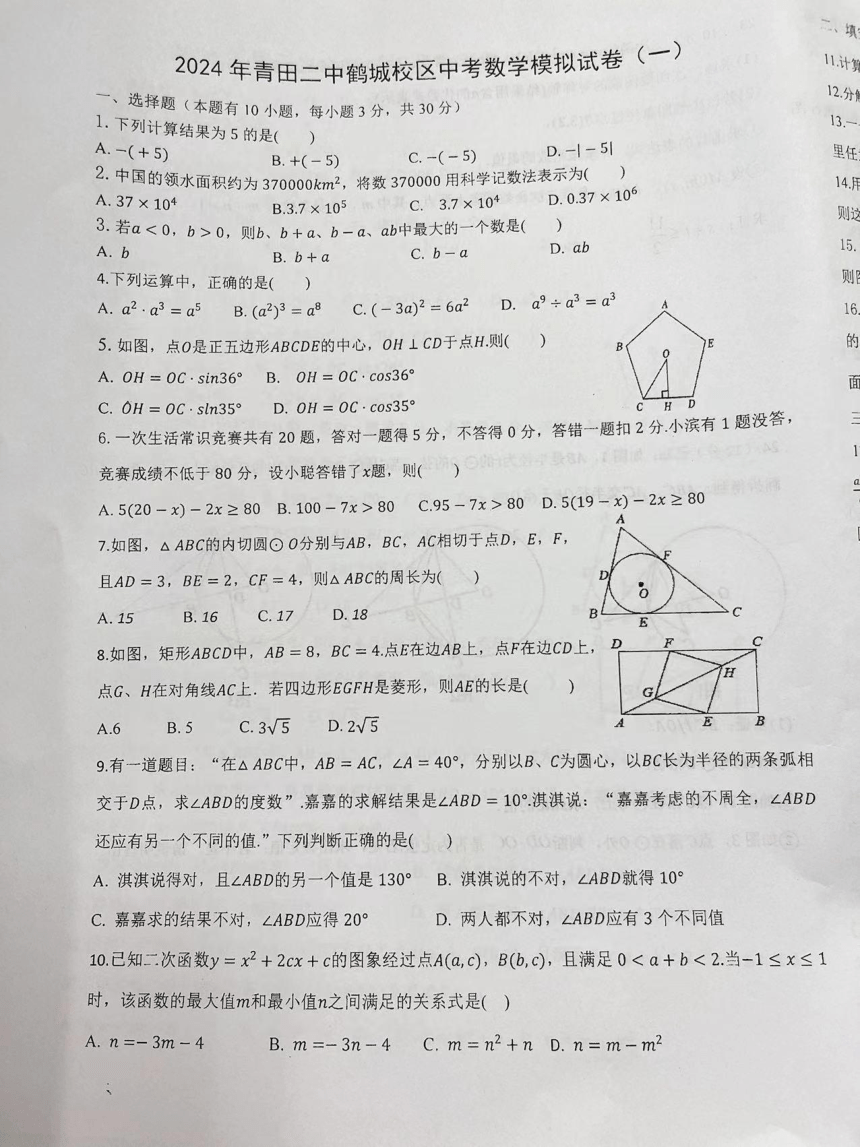 2024 年青田二中鹤城校区中考数学模拟试卷（一）
一、选择题（本题有 10 小题，每小题 3 分，共 30 分）
1. 下列计算结果为 5 的是( )
A. −(+ 5) B. +(− 5) C. −(− 5) D. −|− 5|
2. 中国的领水面积约为 370000km²，将数 370000 用科学记数法表示为( )
A. 37 × 10⁴ B.3.7 × 10⁵ C. 3.7 × 10⁴ D. 0.37 × 10⁶
3. 若a < 0，b > 0，则b、b + a、b − a、ab中最大的一个数是( )
A. b B. b + a C. b − a D. ab
4.下列运算中，正确的是( )
A. a² · a³ = a⁵ B. (a²)³ = a⁸ C. (− 3a)² = 6a² D. a⁹ ÷ a³ = a³
5. 如图，点O是正五边形ABCDE的中心，OH ⊥ CD于点H.则( )
A. OH = OC · sin36° B. OH = OC · cos36°
C. OH = OC · sln35° D. OH = OC · cos35°
A
B
E
O
C H D
6. 一次生活常识竞赛共有 20 题，答对一题得 5 分，不答得 0 分，答错一题扣 2 分.小滨有 1 题没答，
竞赛成绩不低于 80 分，设小聪答错了x题，则( )
A. 5(20 − x) − 2x ≥ 80 B. 100 − 7x > 80 C.95 − 7x > 80 D. 5(19 − x) − 2x ≥ 80
7.如图，△ ABC的内切圆⊙ O分别与AB，BC，AC相切于点D，E，F，
且AD = 3，BE = 2，CF = 4，则△ ABC的周长为( )
A. 15 B. 16 C. 17 D. 18
A
F
D
O
B
E
C
8.如图，矩形ABCD中，AB = 8，BC = 4.点E在边AB上，点F在边CD上，
点G、H在对角线AC上．若四边形EGFH是菱形，则AE的长是( )
A.6 B. 5 C. 3√5 D. 2√5
D F C
H
G
A E B
9.有一道题目：“在△ ABC中，AB = AC，∠A = 40°，分别以B、C为圆心，以BC长为半径的两条弧相
交于D点，求∠ABD的度数”.嘉嘉的求解结果是∠ABD = 10°.淇淇说：“嘉嘉考虑的不周全，∠ABD
还应有另一个不同的值.”下列判断正确的是( )
A. 淇淇说得对，且∠ABD的另一个值是 130° B. 淇淇说的不对，∠ABD就得 10°
C. 嘉嘉求的结果不对，∠ABD应得 20° D. 两人都不对，∠ABD应有 3 个不同值
10.已知二次函数y = x² + 2cx + c的图象经过点A(a, c)，B(b, c)，且满足 0 < a + b < 2.当−1 ≤ x ≤ 1
时，该函数的最大值m和最小值n之间满足的关系式是( )
A. n =− 3m − 4 B. m =− 3n − 4 C. m = n² + n D. n = m − m²
11.计算
12.分解
13.一
里任
14.用
则这
15.
则
16.
的
面
三